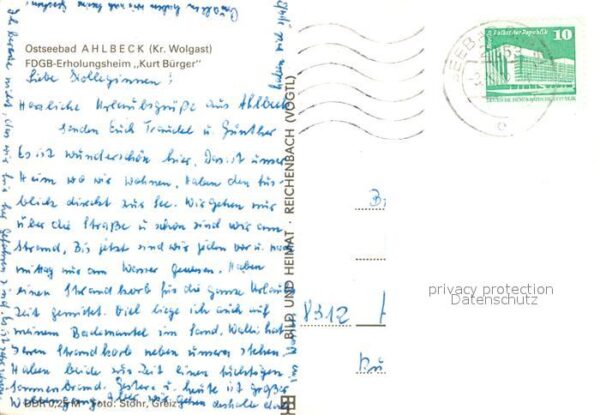 Ostseebad AHLBECK (Kr. Wolgast)
FDGB-Erholungsheim „Kurt Bürger"
Liebe Kolleginnen!
Herzliche Urlaubsgrüße aus Ahlbeck
senden Euch Traudel u. Günther
Es ist wunderschön hier. Das ist unser
Heim wo wir wohnen. Haben den
blick direkt zur See. Wir gehen nur
über die Straße u. schon sind wir am
Strand. Bis jetzt sind wir jeden vor u. nach
mittag nur am Wasser gewesen. Haben
einen Strandkorb für die ganze Urlaubs
Zeit gemietet. Viel liege ich auch auf
meinem Bademantel im Sand. Walli hat
deren Strandkorb neben unseren stehen.
Haben beide zur Zeit einen tüchtigen
Sonnenbrand. Gestern u. heute ist großer
Wellengang. Aber wir gehen deshalb
DDR 0,25 M Foto: Stöhr, Greiz
BILD UND HEIMAT · REICHENBACH (VOGTL)
Palast der Republik
10
DEUTSCHE DEMOKRATISCHE REPUBLIK
SEEB
8312
privacy protection
Datenschutz